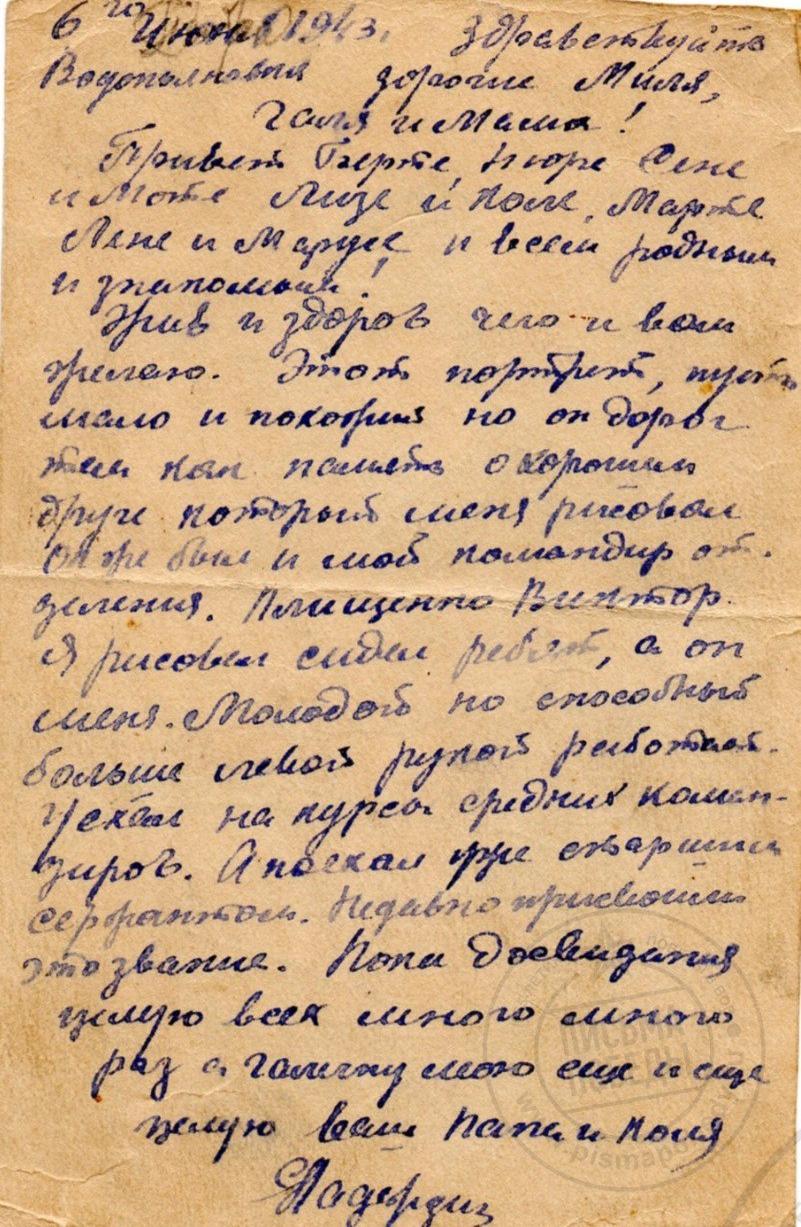 6го Июня 1943. Здравствуйте
дорогие Миля,
Галя и Маша!
Привет Берте, Нюре Сене
и Моте Лизе и Поле, Марте
Лене и Марусе и всем родным
и знакомым!
Жив и здоров чего и вам
желаю. Этот портрет, пусть
мало и похожий но он дорог
тем как память о хорошем
друге который меня рисовал
Он же был и мой командир от-
деления. Плищенко Виктор.
Я рисовал сидел ребят, а он
меня. Молодой но способный
больше левой рукой работает.
Уехал на курсы средних коман-
диров. А поехал уже старшим
сержантом. Недавно присвоили
это звание. Пока досвидания
целую всех много много
раз а галичку мою еще и еще
целую ваш папа и Коля
ПИСЬМА
ПОБЕДЫ